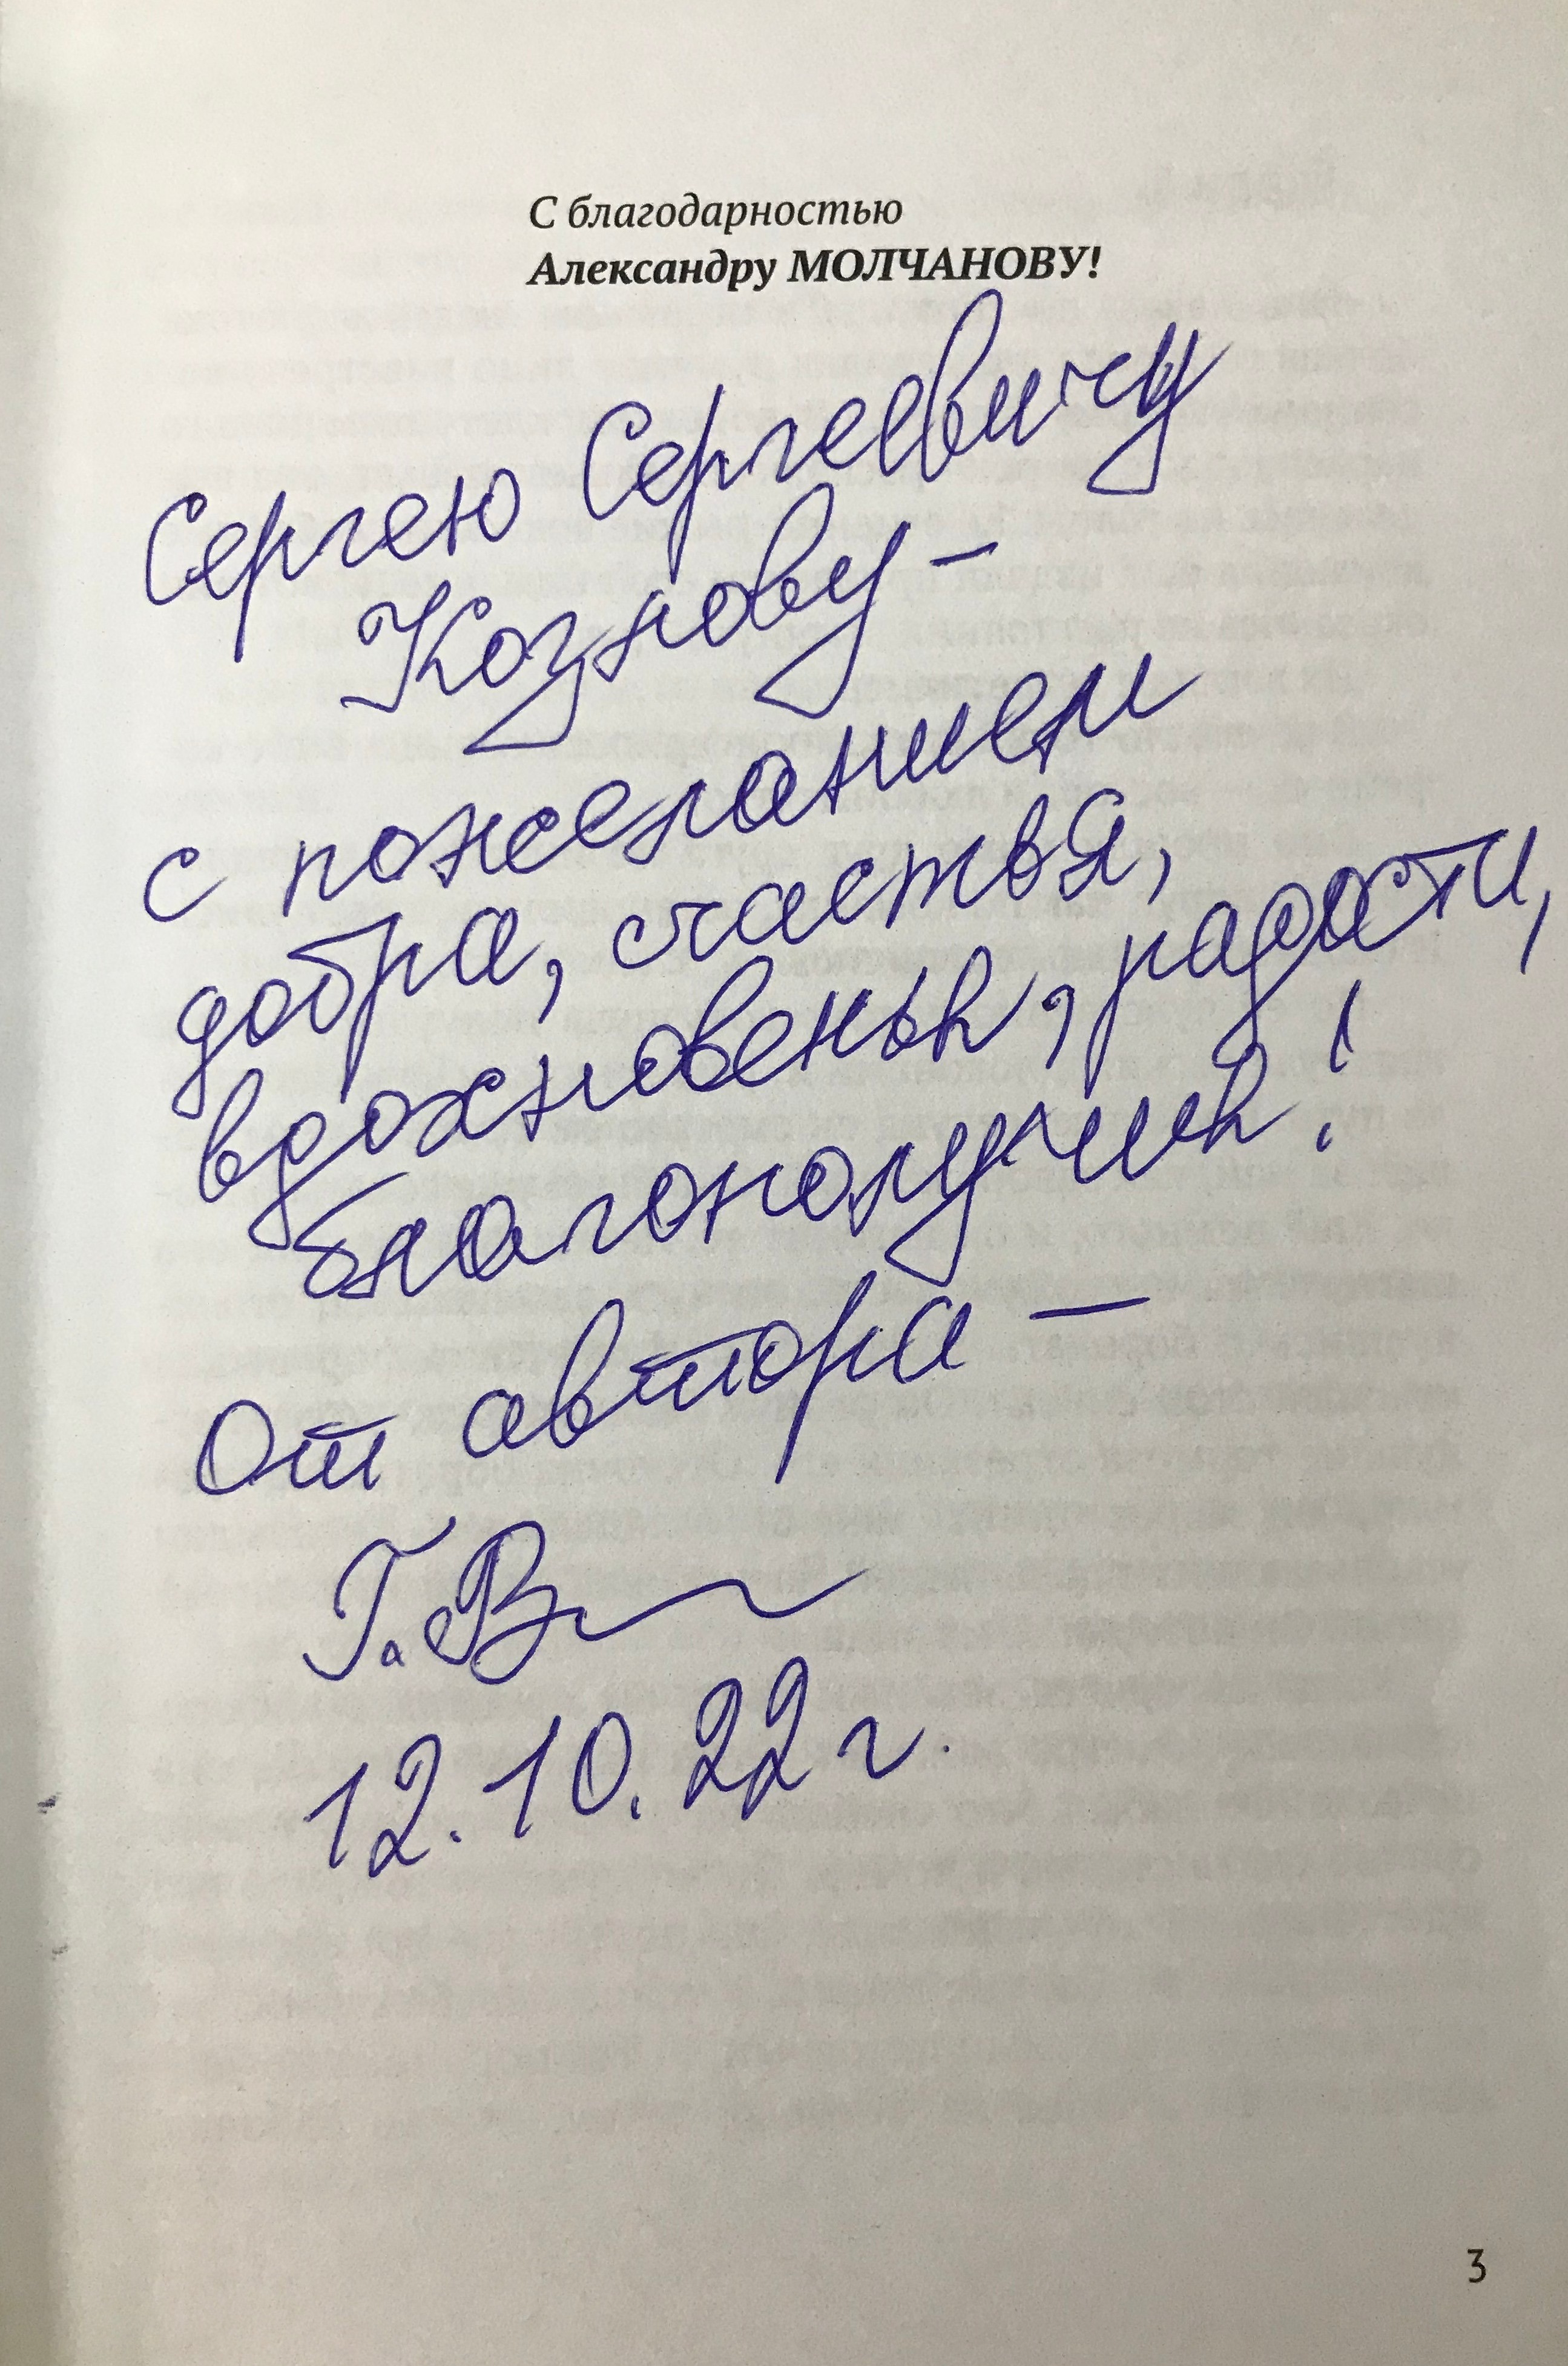 С благодарностью
Александру МОЛЧАНОВУ!
Сергею Сергеевичу
Кознову –
с пожеланием
добра, счастья,
вдохновенья, радости,
благополучия!
От автора –
Г. В
12.10.22 г.
3